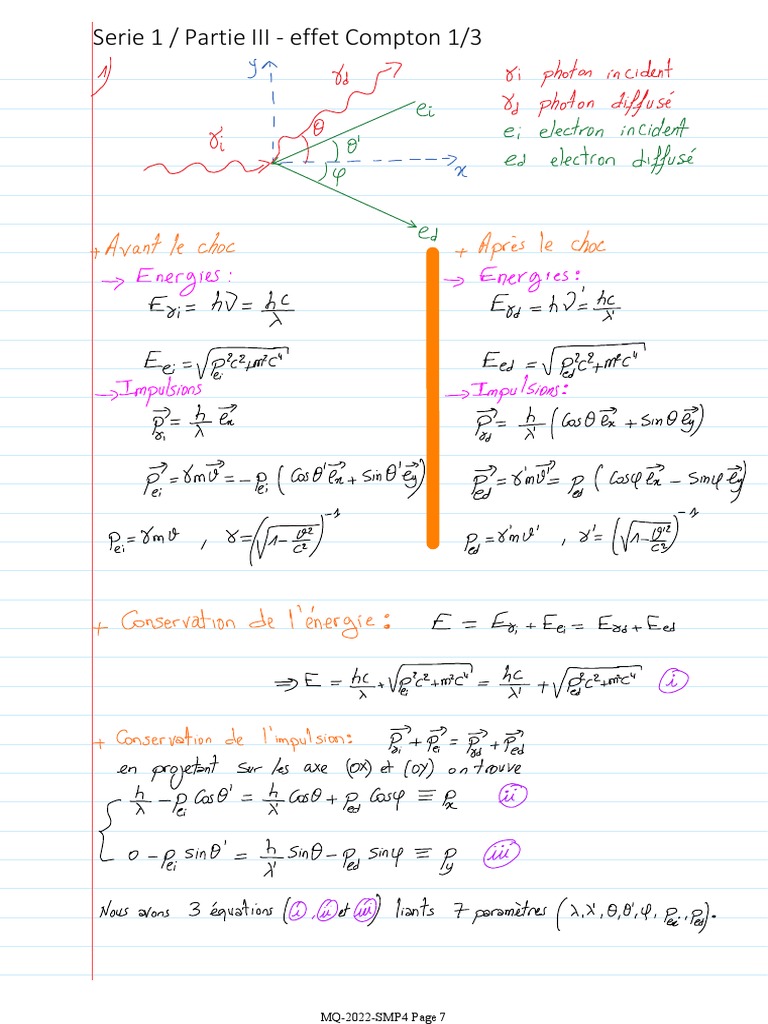 Serie 1 / Partie III - effet Compton 1/3
1)
y
γd
γi photon incident
ei
γd photon diffusé
γi
θ
θ'
ei electron incident
φ
x
ed electron diffusé
ed
+ Avant le choc
→ Energies:
E_γi = hν = hc/λ
E_ei = √(p_ei²c²+m²c⁴)
→ Impulsions
p⃗_γi = h/λ e⃗x
p⃗_ei = γmv⃗ = -p_ei (Cosθ' e⃗x + sinθ' e⃗y)
p_ei = γmv , γ = (√(1-v²/c²))⁻¹
+ Après le choc
→ Energies:
E_γd = hν' = hc/λ'
E_ed = √(p_ed²c²+m²c⁴)
→ Impulsions:
p⃗_γd = h/λ' (Cosθ e⃗x + Sinθ e⃗y)
p⃗_ed = γ'mv⃗' = p_ed (Cosφ e⃗x - Sinφ e⃗y)
p_ed = γ'mv' , γ' = (√(1-v'²/c²))⁻¹
+ Conservation de l'énergie: E = E_γi + E_ei = E_γd + E_ed
⇒ E = hc/λ + √(p_ei²c²+m²c⁴) = hc/λ' + √(p_ed²c²+m²c⁴) (i)
+ Conservation de l'impulsion: p⃗_γi + p⃗_ei = p⃗_γd + p⃗_ed
en projetant sur les axe (OX) et (OY) on trouve
h/λ - p_ei Cosθ' = h/λ' Cosθ + p_ed Cosφ ≡ p_x (ii)
0 - p_ei sinθ' = h/λ' sinθ - p_ed sinφ ≡ p_y (iii)
Nous avons 3 équations (i, ii et iii) liants 7 paramètres (λ, λ', θ, θ', φ, p_ei, p_ed).
MQ-2022-SMP4 Page 7